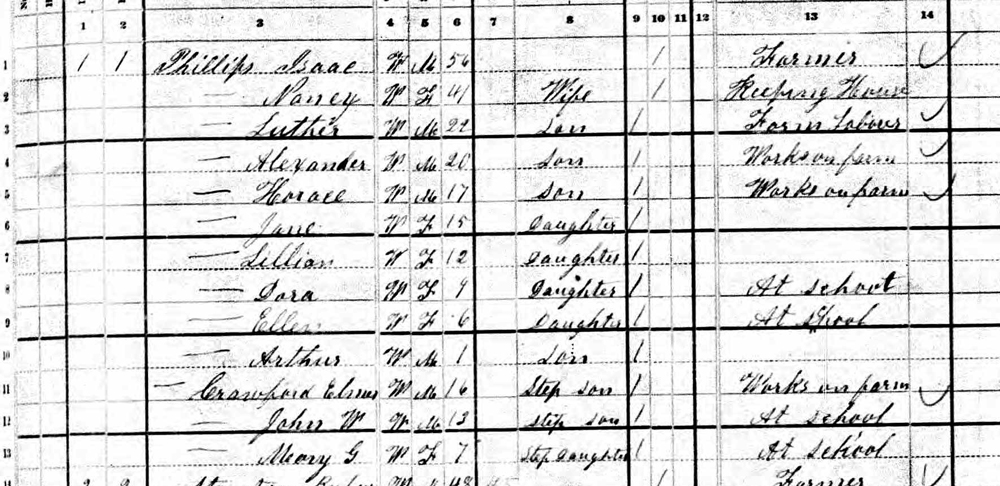 1 2 3 4 5 6 7 8 9 10 11 12 13 14
1 1 1 Phillips Isaac W M 56 1 Farmer
2 — Nancy W F 41 Wife 1 Keeping House
3 — Luther W M 22 Son 1 Farm Labour
4 — Alexander W M 20 Son 1 Works on farm
5 — Horace W M 17 Son 1 Works on farm
6 — Jane W F 15 Daughter 1
7 — Lillian W F 12 Daughter 1
8 — Dora W F 9 Daughter 1 At school
9 — Ellen W F 6 Daughter 1 At school
10 — Arthur W M 1 Son 1
11 — Crawford Elmer W M 16 Step son 1 Works on farm
12 — John W W M 13 Step son 1 At school
13 — Mary G W F 7 Step Daughter 1 At school
14 2 2 W M 48 1 Farmer